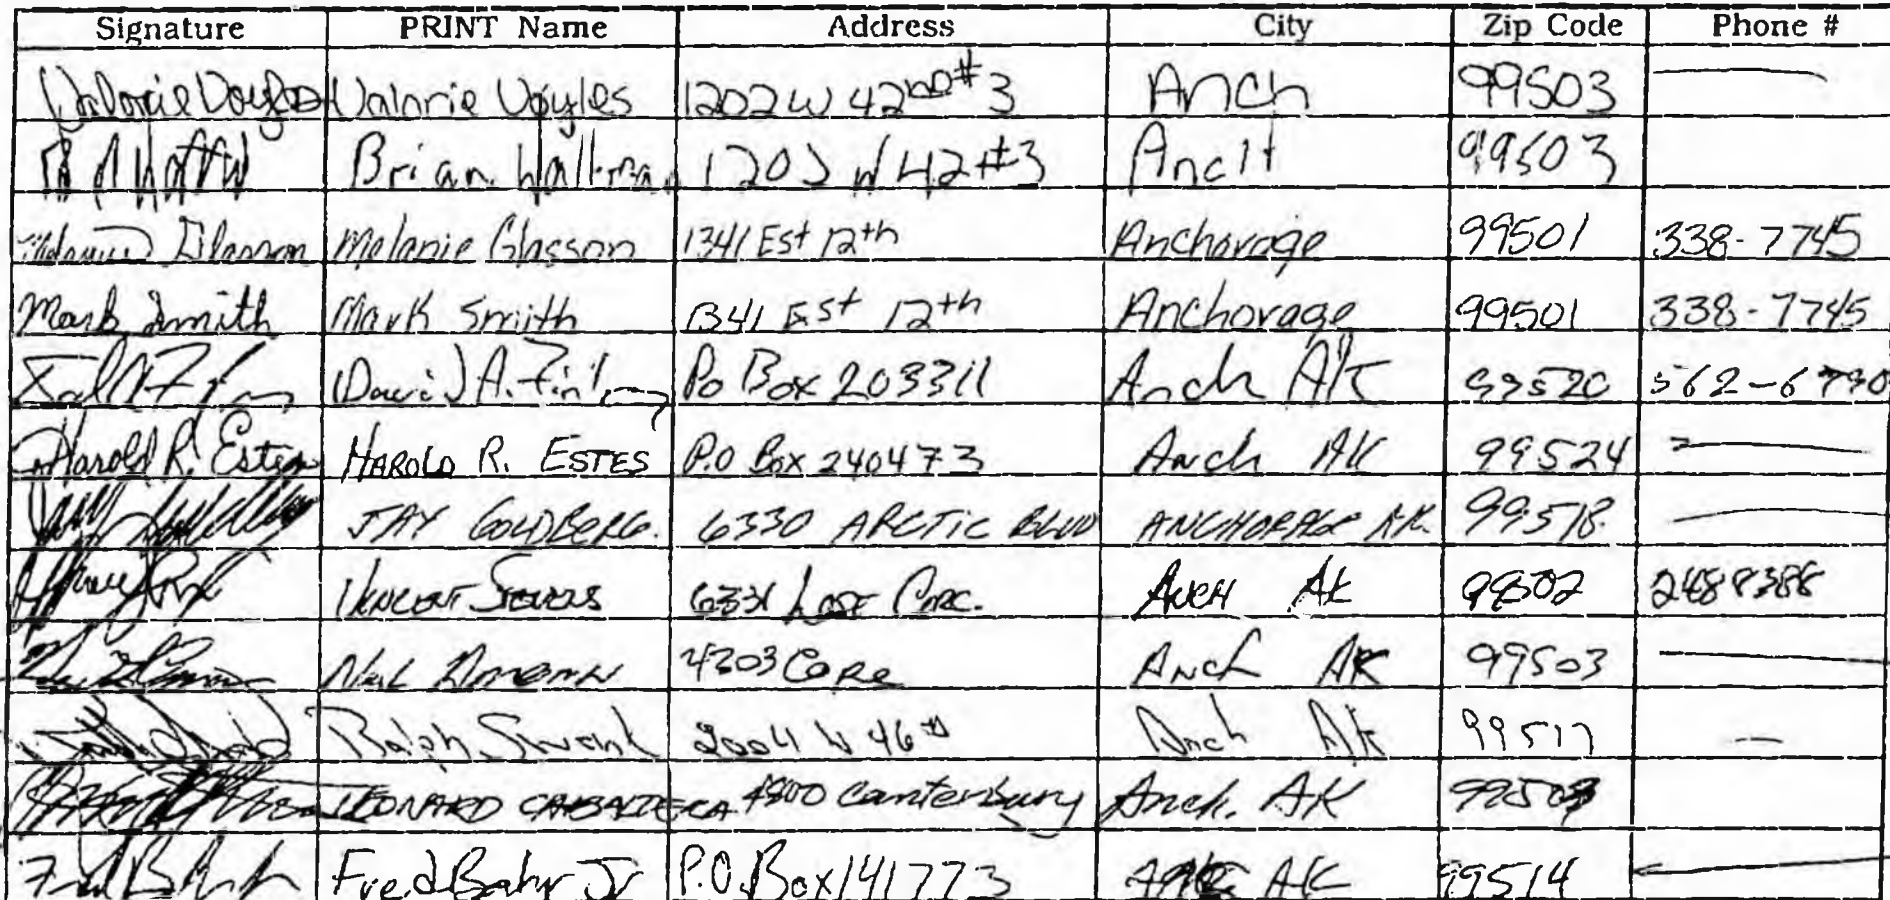 Signature PRINT Name Address City Zip Code Phone #
Valorie Voyles Valorie Voyles 1202 W 42nd #3 Anch 99503
Brian 1202 W 42 #3 Anch 99503
Melanie Glasson Melanie Glasson 1341 Est 12th Anchorage 99501 338-7745
Mark Smith Mark Smith 1341 Est 12th Anchorage 99501 338-7745
David A. Po Box 203311 Anch AK 99520 562-6730
Harold R. Estes HAROLD R. ESTES P.O Box 240473 Anch AK 99524
JAY GOLDBERG. 6330 ARCTIC BLVD ANCHORAGE AK. 99518
VINCENT STEVENS 6331 Circ. Anch AK 99502 2488388
4203 Cope Anch AK 99503
Ralph 2004 W 46th Anch AK 99517
LEONARD 4800 Canterbury Anch. AK
Fred Bahr Jr P.O. Box 141773 AK 99514